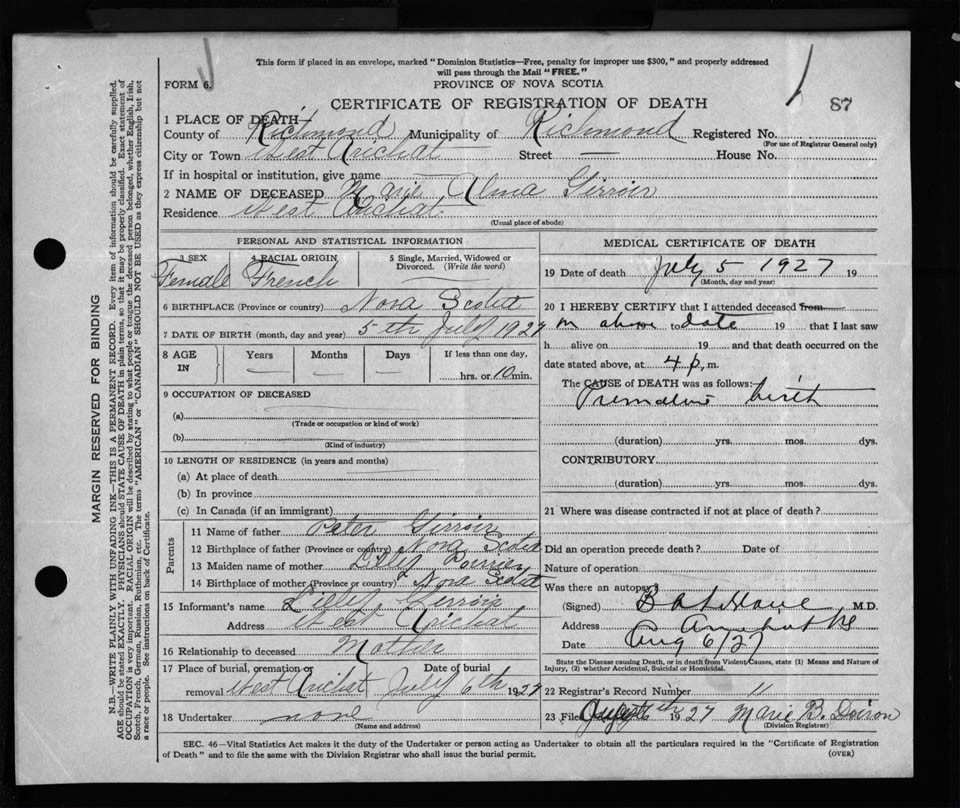 This form if placed in an envelope, marked "Dominion Statistics—Free, penalty for improper use $300," and properly addressed
will pass through the Mail "FREE."
FORM 6.
PROVINCE OF NOVA SCOTIA
CERTIFICATE OF REGISTRATION OF DEATH
87
1 PLACE OF DEATH
County of Richmond Municipality of Richmond Registered No.
(For use of Registrar General only)
City or Town West Arichat Street — House No.
If in hospital or institution, give name
2 NAME OF DECEASED Marie Alma Girroir
Residence West Arichat
(Usual place of abode)
PERSONAL AND STATISTICAL INFORMATION
3 SEX
Female
4 RACIAL ORIGIN
French
5 Single, Married, Widowed or
Divorced. (Write the word)
6 BIRTHPLACE (Province or country) Nova Scotia
7 DATE OF BIRTH (month, day and year) 5th July 1927
8 AGE
IN
Years
—
Months
—
Days
—
If less than one day,
hrs. or 10 min.
9 OCCUPATION OF DECEASED
(a)
(Trade or occupation or kind of work)
(b)
(Kind of industry)
10 LENGTH OF RESIDENCE (in years and months)
(a) At place of death
(b) In province
(c) In Canada (if an immigrant)
Parents
11 Name of father Peter Girroir
12 Birthplace of father (Province or country) Nova Scotia
13 Maiden name of mother
14 Birthplace of mother (Province or country) Nova Scotia
15 Informant's name Girroir
Address West Arichat
16 Relationship to deceased Mother
17 Place of burial, cremation or Date of burial
removal West Arichat July 6th 1927
18 Undertaker none
(Name and address)
MEDICAL CERTIFICATE OF DEATH
19 Date of death July 5 1927 19
(Month, day and year)
20 I HEREBY CERTIFY that I attended deceased from
on above to date 19 that I last saw
h alive on 19 and that death occurred on the
date stated above, at 4 p. m.
The CAUSE of DEATH was as follows:
Premature birth
(duration) yrs. mos. dys.
CONTRIBUTORY
(duration) yrs. mos. dys.
21 Where was disease contracted if not at place of death?
Did an operation precede death? Date of
Nature of operation
Was there an autopsy
(Signed) M.D.
Address
Date Aug 6/27
State the Disease causing Death, or in death from Violent Causes, state (1) Means and Nature of
Injury, (2) whether Accidental, Suicidal or Homicidal.
22 Registrar's Record Number 11
23 Filed 1927 Marie B. Doiron
(Division Registrar)
SEC. 46—Vital Statistics Act makes it the duty of the Undertaker or person acting as Undertaker to obtain all the particulars required in the "Certificate of Registration
of Death" and to file the same with the Division Registrar who shall issue the burial permit.
(OVER)
MARGIN RESERVED FOR BINDING
N.B.—WRITE PLAINLY WITH UNFADING INK—THIS IS A PERMANENT RECORD. Every item of information should be carefully supplied.
AGE should be stated EXACTLY. PHYSICIANS should STATE CAUSE OF DEATH in plain terms, so that it may be properly classified. Exact statement of
OCCUPATION is very important. RACIAL ORIGIN will be described by stating to what people or tongue the deceased person belonged, whether English, Irish,
Scotch, French, German, Russian, Ruthenian, etc. The terms "AMERICAN" or "CANADIAN" SHOULD NOT BE USED as they express citizenship but not
a race or people. See instructions on back of Certificate.